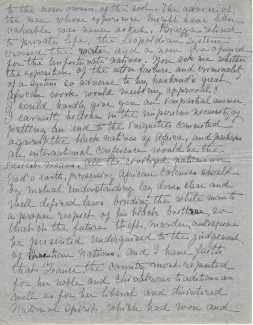 to the new owners of the soil. The advice of
the men whose experience might have been
valuable was never asked. Brazza retired
to private life, the Leopoldian system
crossed the and a new era opened
for the unfortunate natives. You ask me whether
the exposition of the utter failure and criminality
of a system so adverse to my husband's great
African work would meet my approval?
I could hardly give you an impartial answer.
I earnestly believe in the imperious necessity of
putting an end to the iniquities committed
against the black natives of Africa, and perhaps
an international conference would be the
easiest means. All the civilized nations on
God's earth, possessing African colonies should
by mutual understanding lay down clear and
well defined laws binding the white man to
a proper respect of his black brother, so
that in the future theft, murder, and rapine
be presented undisguised to the judgement
of Nations. And I have faith
that France the country most reputed
for her noble and chivalrous traditions as
well as for her liberal and disinterested
National spirit, which had won and